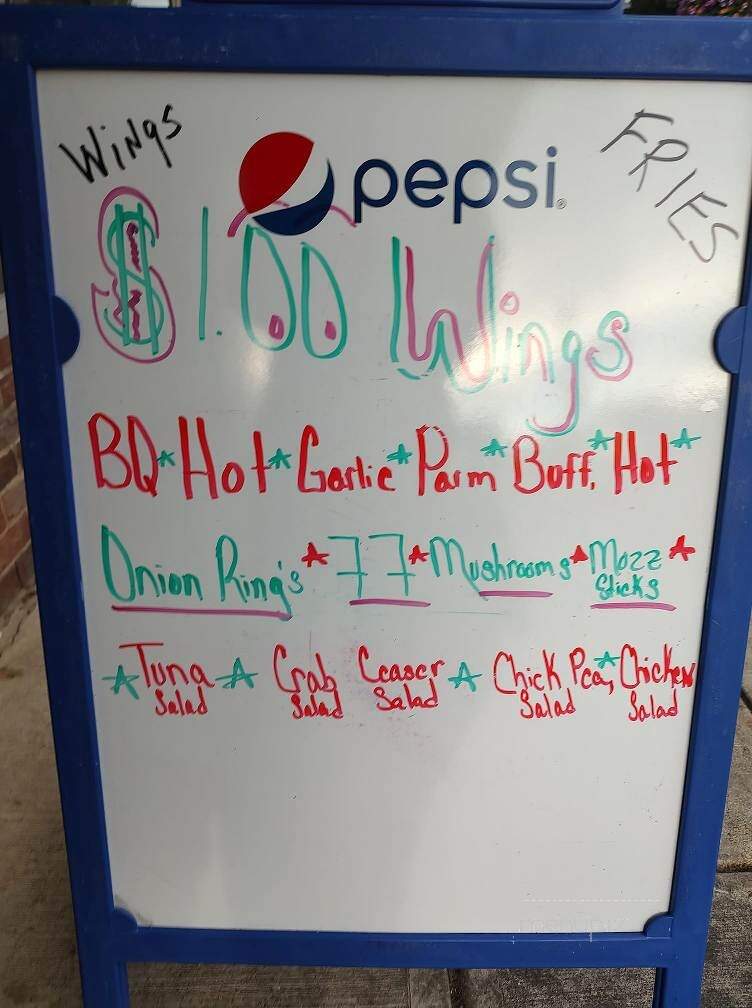 Wings
FRIES
pepsi.
$1.00 Wings
BQ * Hot * Garlic * Parm * Buff. * Hot *
Onion Ring's * FF * Mushrooms * Mozz Sticks *
* Tuna Salad * Crab Salad Ceaser Salad * Chick Pea, Salad * Chicken Salad